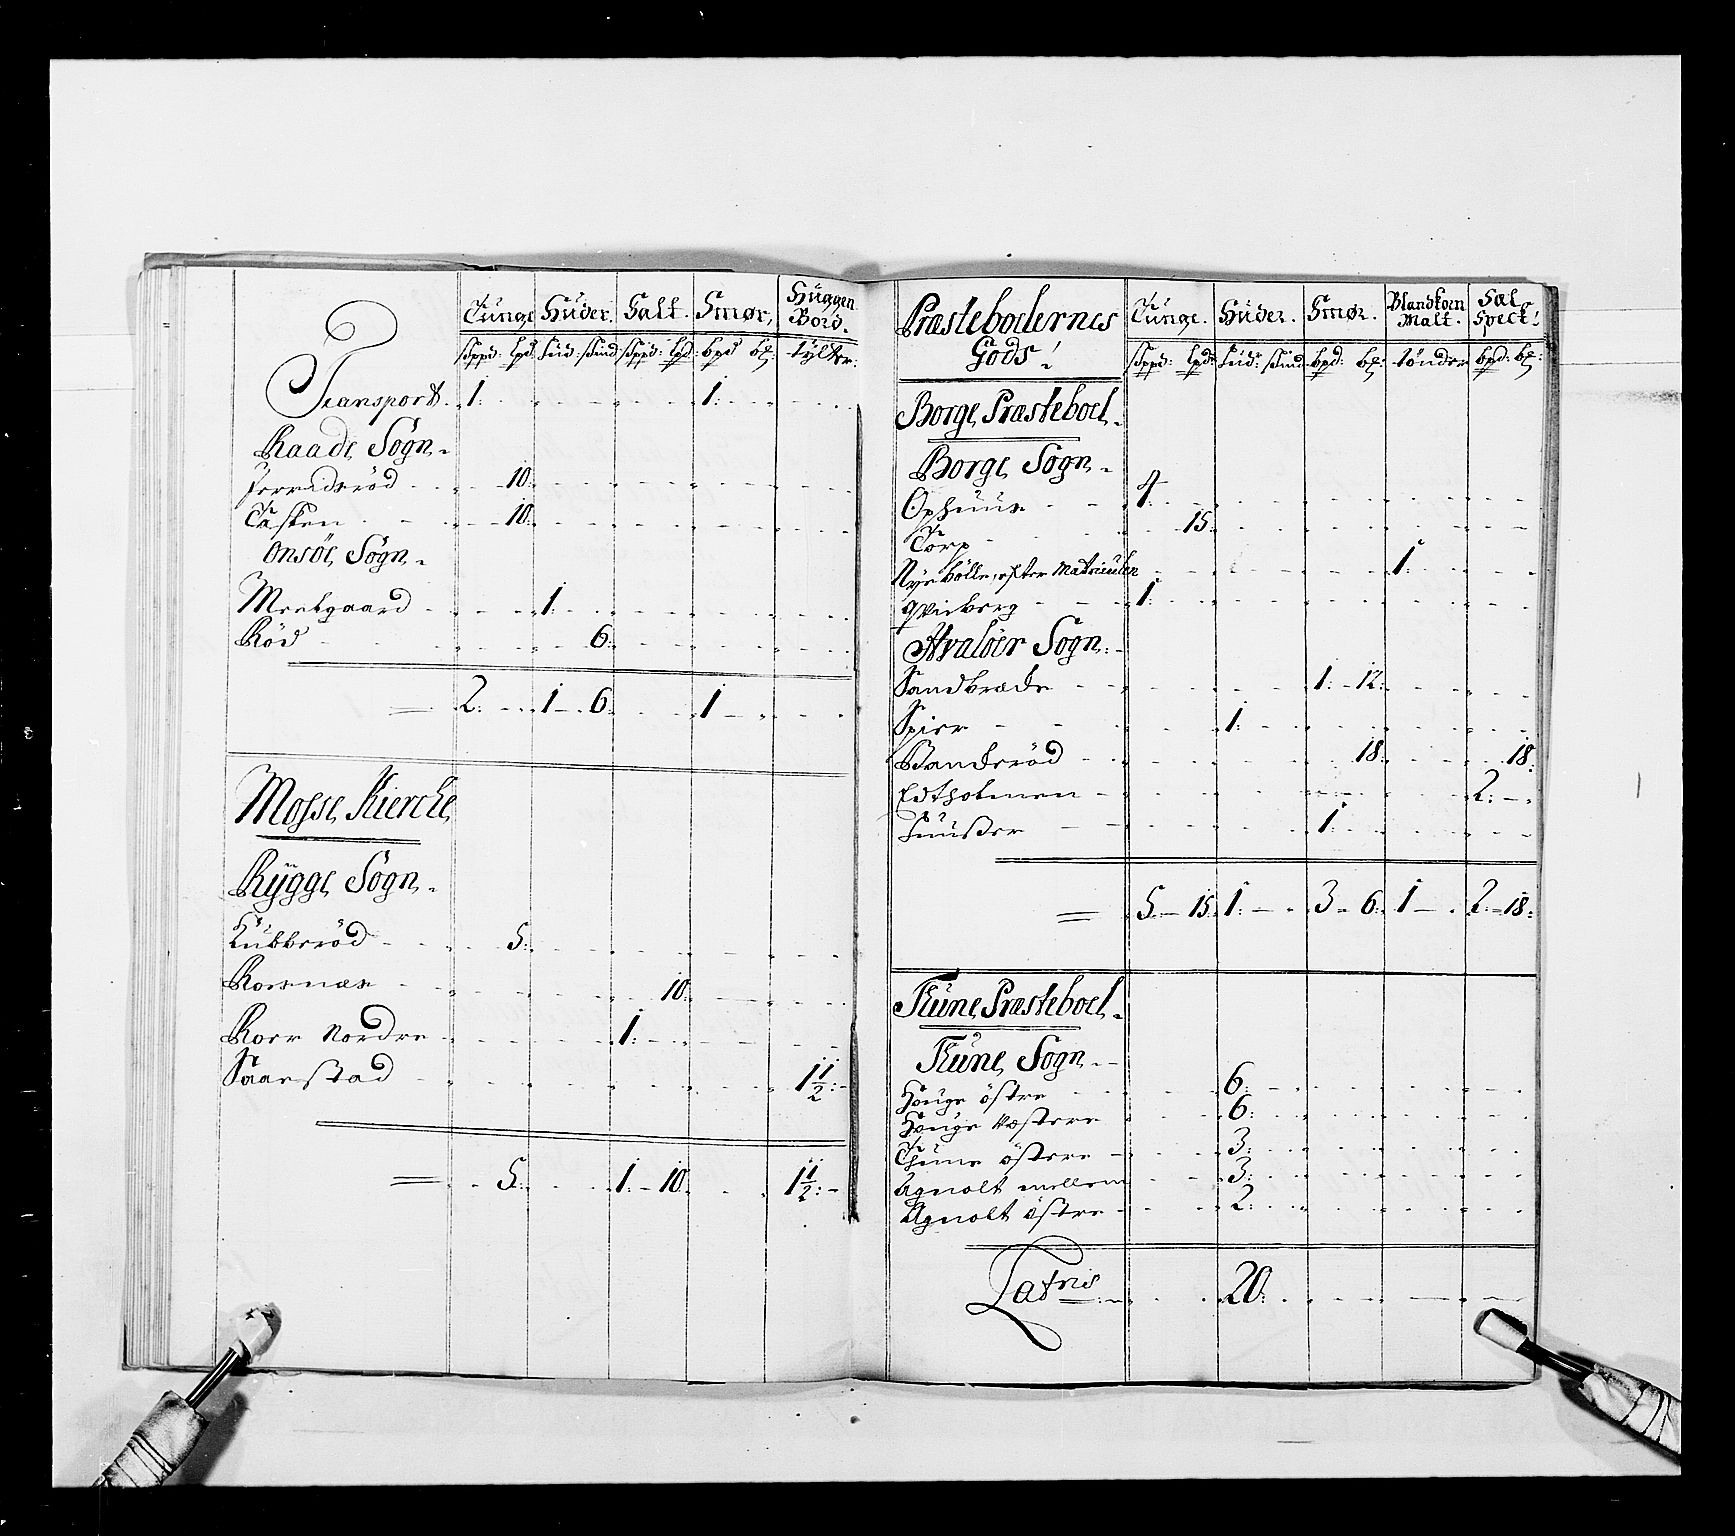 Tunge Huder. Salt. Smør, Huggen Bord.
skppd: lpd: hud: skind skppd: lpd: bpd bℓ: tylter:
Transport. 1: 1:
Raade Sogn.
10:
Tasken 10:
Onsöe Sogn.
Meelgaard 1:
Röd 6:
= 2: 1 6: 1
Mosse Kiercke
Rygge Sogn.
Kubberöd 5:
Roesnæs 10:
Roer Nordre 1:
Saarstad 1 1/2:
= 5: 1: 10 1 1/2:
Præstebolernes Gods! Tunge. Huder. Smør. Blandkorn Malt. Sæl Spect!
skppd: lpd: hud: skind bpd: bℓ: tønder bpd: bℓ:
Borge Præsteboel.
Borge Sogn.
Ophuus 4:
Torp 15:
Nyebölle, efter Matriculen 1:
Qviberg 1:
Hvalöer Sogn.
Sandbræde 1: 12:
Spier 1:
Bandseröd 18: 18:
Edtholmen 2:
Huuser 1:
= 5 15: 1: 3 6: 1 2: 18:
Thune Præsteboel.
Thune Sogn.
Houge östre 6:
Houge Væstere 6:
Thune östere 3:
Agnolt mellem 3:
Agnolt östre 2:
Latris 20: